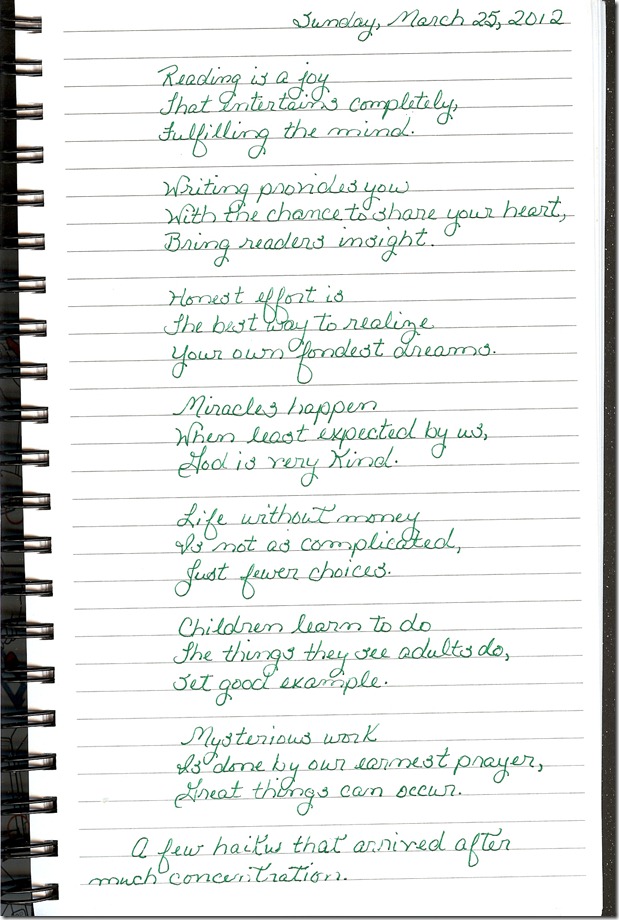 Sunday, March 25, 2012
Reading is a joy
That entertains completely,
Fulfilling the mind.
Writing provides you
With the chance to share your heart,
Bring readers insight.
Honest effort is
The best way to realize
Your own fondest dreams.
Miracles happen
When least expected by us,
God is very kind.
Life without money
Is not as complicated,
Just fewer choices.
Children learn to do
The things they see adults do,
Set good example.
Mysterious work
Is done by our earnest prayer,
Great things can occur.
A few haikus that arrived after
much concentration.